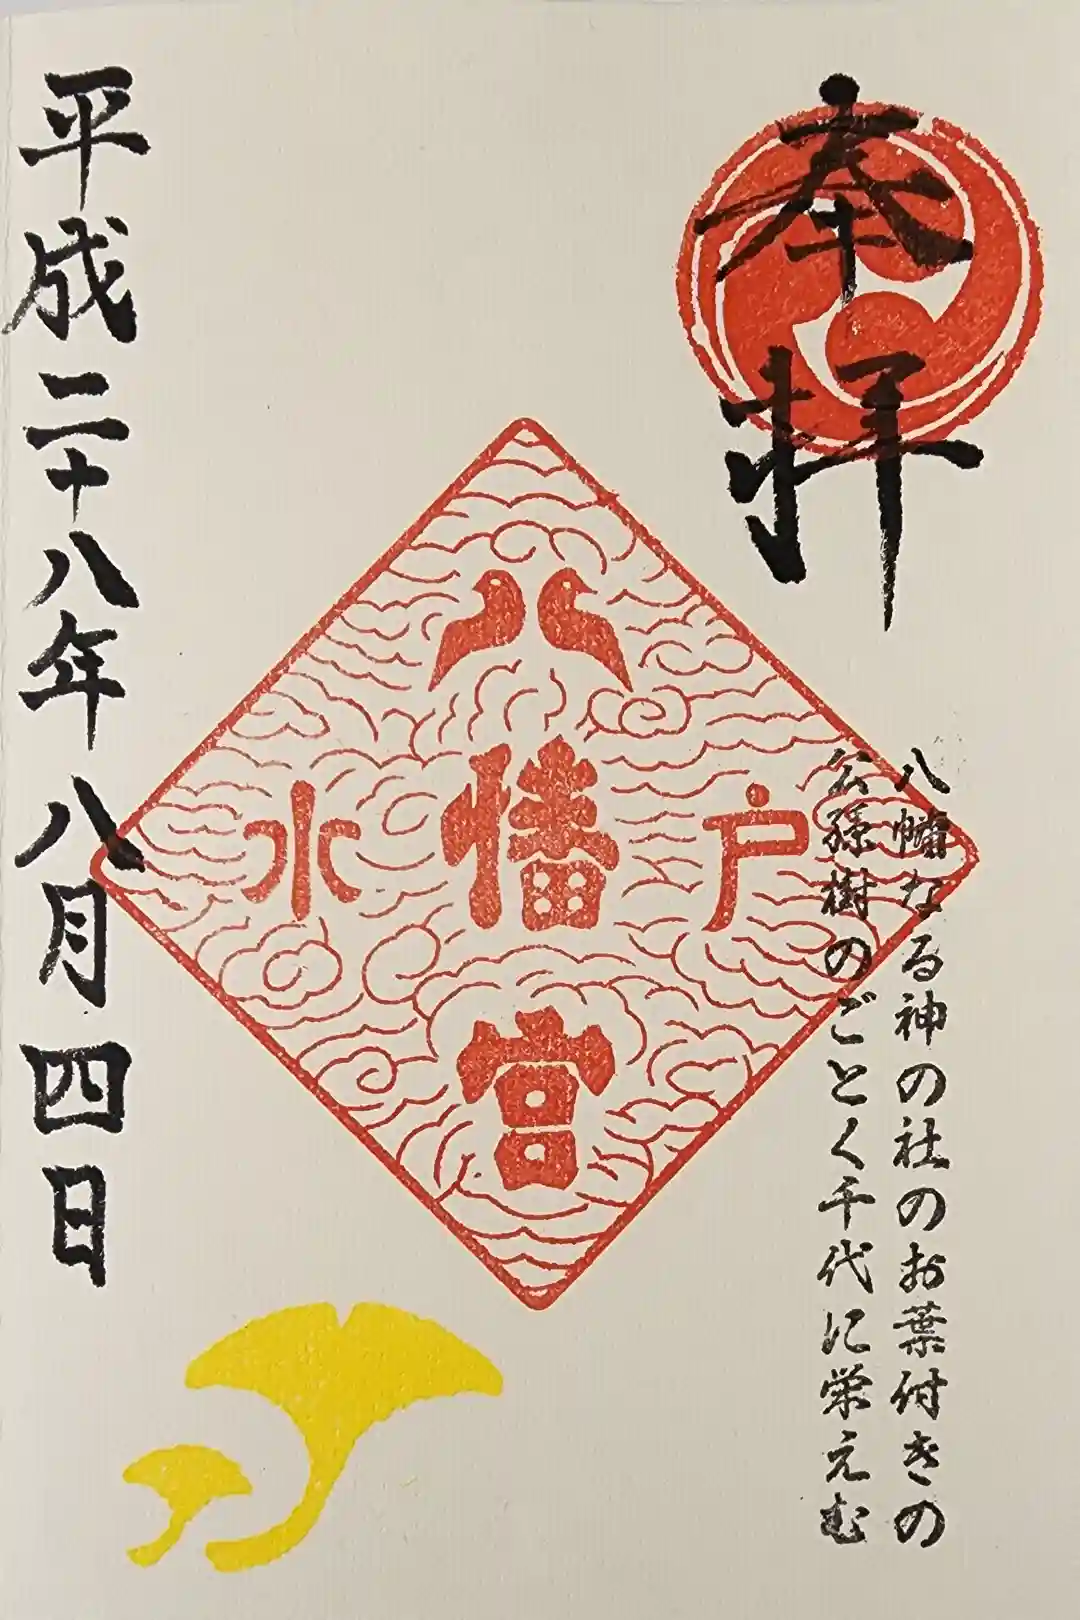 奉拝
八幡なる神の社のお葉付きの
公孫樹のごとく千代に栄えむ
水戸
八幡宮
平成二十八年八月四日